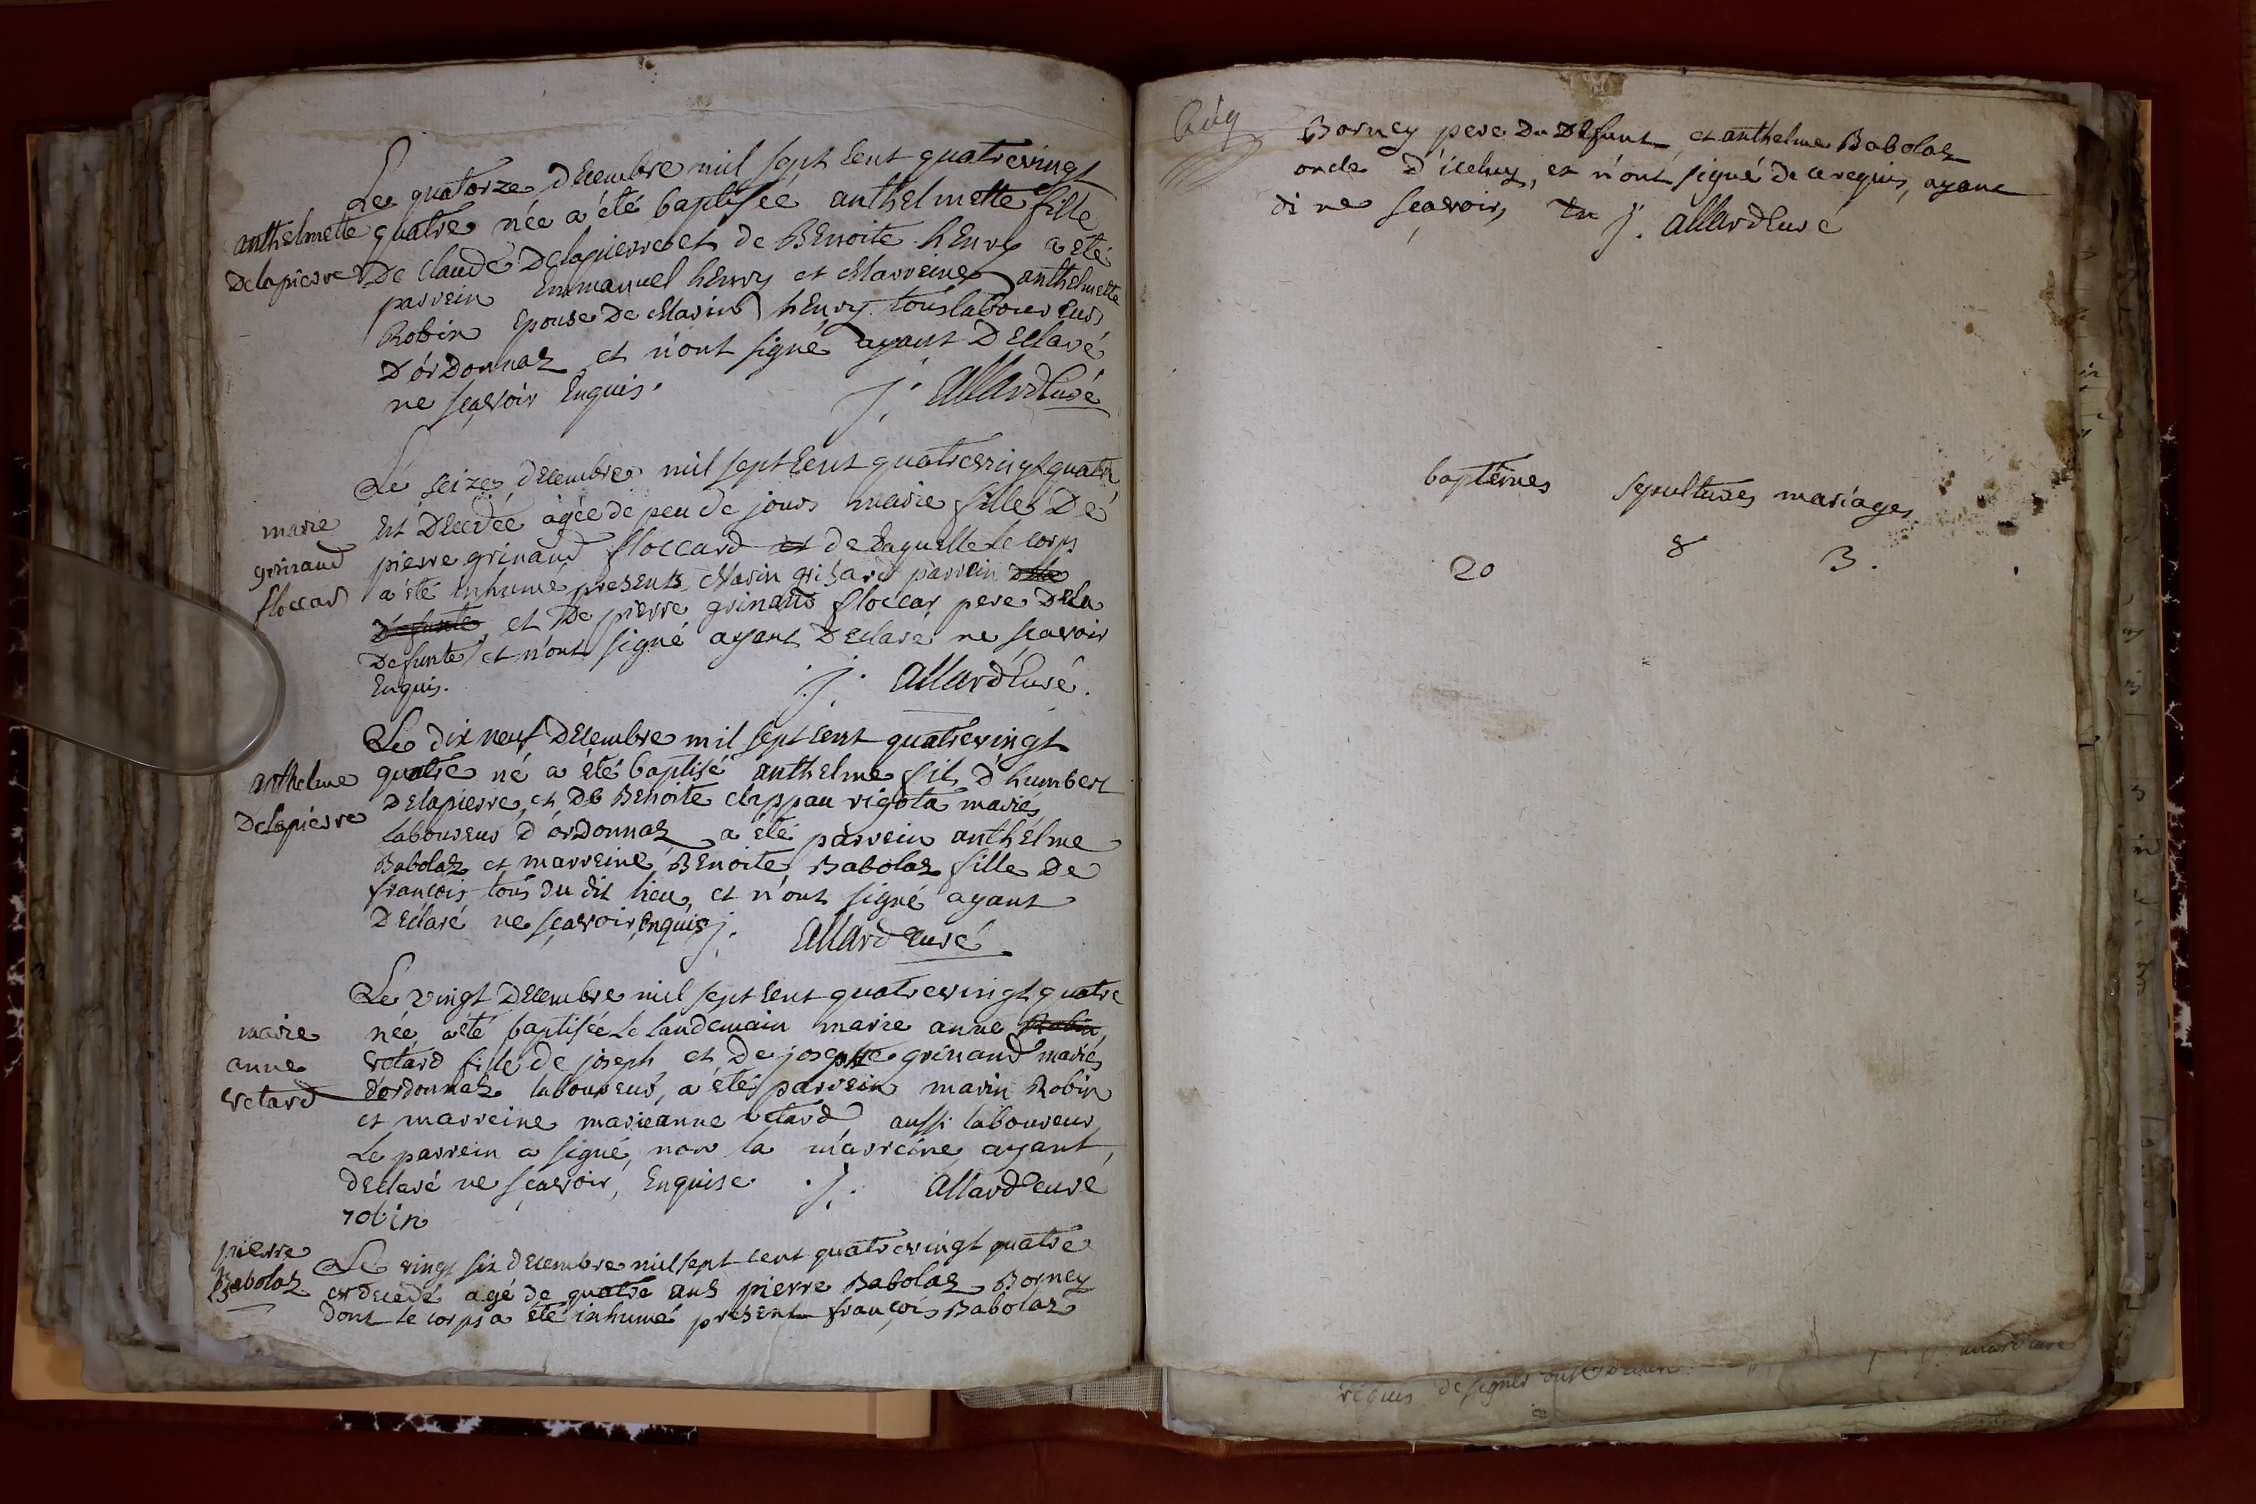 Le quatorze Decembre mil sept cent quatrevingt
anthelmette quatre née a été baptisée anthelmette fille
Delapierre De claude Delapierre et de Benoite henry a été
parrein Emmanuel henry et Marreine anthelmette
Robin Epouse De Marin henry tous laboureurs
D'ordonnaz et n'ont signé ayant Declaré
ne sçavoir Enquis.
j. allard Curé
Le seize decembre mil sept cent quatrevingt quatre
marie est Decedée agée de peu de jours marie fille De
grinand pierre grinand floccard et de Laquelle le corps
floccard a été inhumé presents Marin grisard parrein dela
Defunte et De pierre grinand floccar pere Dela
Defunte et n'ont signé ayant Declaré ne sçavoir
Enquis.
j. allard Curé.
Le dix neuf Decembre mil sept cent quatrevingt
anthelme quatre né a été baptisé anthelme fils d'humbert
Delapierre Delapierre et De Benoite clappau rigota mariés
laboureur d'ordonnaz a été parrein anthelme
Babolaz et marreine Benoite Babolaz fille De
françois tous du dit lieu, et n'ont signé ayant
Declaré ne sçavoir enquis j. allard curé
Le vingt Decembre mil sept cent quatrevingt quatre
marie née a été baptisée Le landemain marie anne Robin
anne vetard fille de joseph et De josephte grinand mariés
vetard d'ordonnaz laboureur, a été parrein marin Robin
et marreine marieanne vetard aussi laboureur
Le parrein a signé, non la marreine ayant
Declaré ne sçavoir, Enquise. j. allard curé
robin
pierre Le vingt six decembre mil sept cent quatrevingt quatre
Babolaz est decedé agé de quatre ans pierre Babolaz Borney
Dont le corps a été inhumé present françois Babolaz
Borney pere Du Defunt et anthelme Babolaz
oncle d'iceluy, et n'ont signé de ce requis, ayant
di ne sçavoir, j. allard curé
baptêmes sepultures mariages
20 8 3.
requis de signer